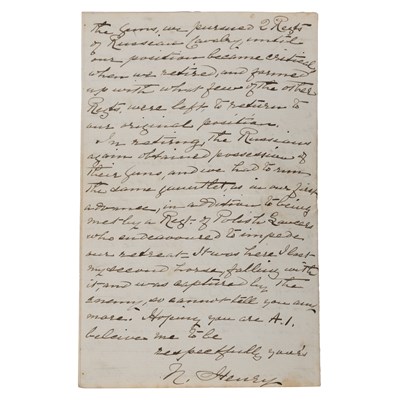 the Guns, we pursued 2 Regts
of Russian Cavalry, until
our position became critical
when we retired, and formed
up with what few of the other
Regts, were left to return to
our original position.
In retiring the Russians
again obtained possession of
their Guns, and we had to run
the same gauntlet, as in our first
advance, in addition to being
met by a Regt. of Polish Lancers
who endeavoured to impede
our retreat - It was here I lost
my second horse, falling with
it, and was captured by the
enemy, so cannot tell you any
more. Hoping you are A.1.
beleive me to be
respectfully yours
N. Henry